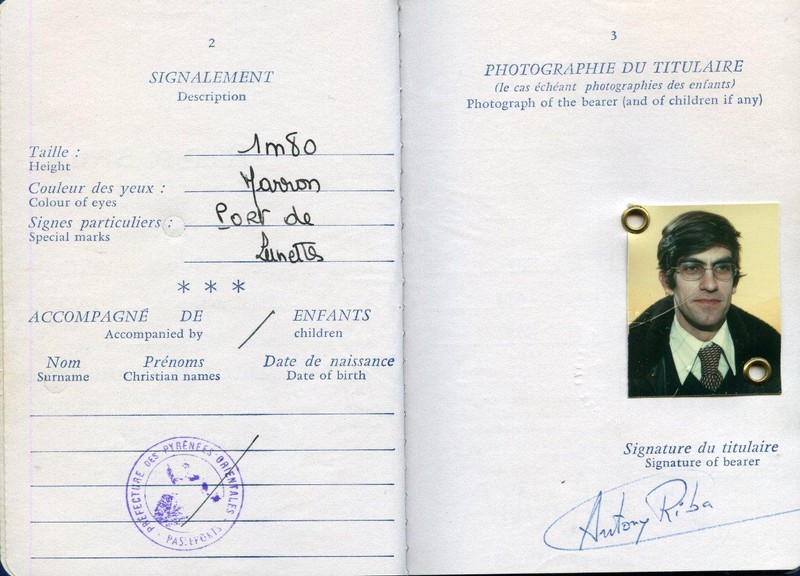 2
SIGNALEMENT
Description
Taille : 1m80
Height
Couleur des yeux : Marron
Colour of eyes
Signes particuliers : Port de
Special marks
Lunettes
* * *
ACCOMPAGNÉ DE / ENFANTS
Accompanied by children
Nom Prénoms Date de naissance
Surname Christian names Date of birth
PRÉFECTURE DES PYRÉNÉES ORIENTALES
- PASSEPORTS -
3
PHOTOGRAPHIE DU TITULAIRE
(le cas échéant photographies des enfants)
Photograph of the bearer (and of children if any)
Signature du titulaire
Signature of bearer
Antony Riba